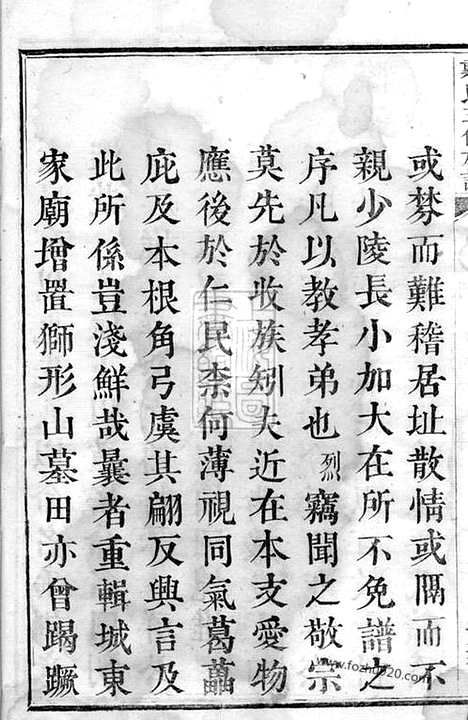 或棼而難稽居址散情或隔而不
親少陵長小加大在所不免譜之
序凡以教孝弟也烈竊聞之敬宗
莫先於收族矧夫近在本支愛物
應後於仁民柰何薄視同氣葛藟
庇及本根角弓虞其翩反興言及
此所係豈淺鮮哉曩者重輯城東
家廟增置獅形山墓田亦曾蹋蹶
www.fozhu920.com